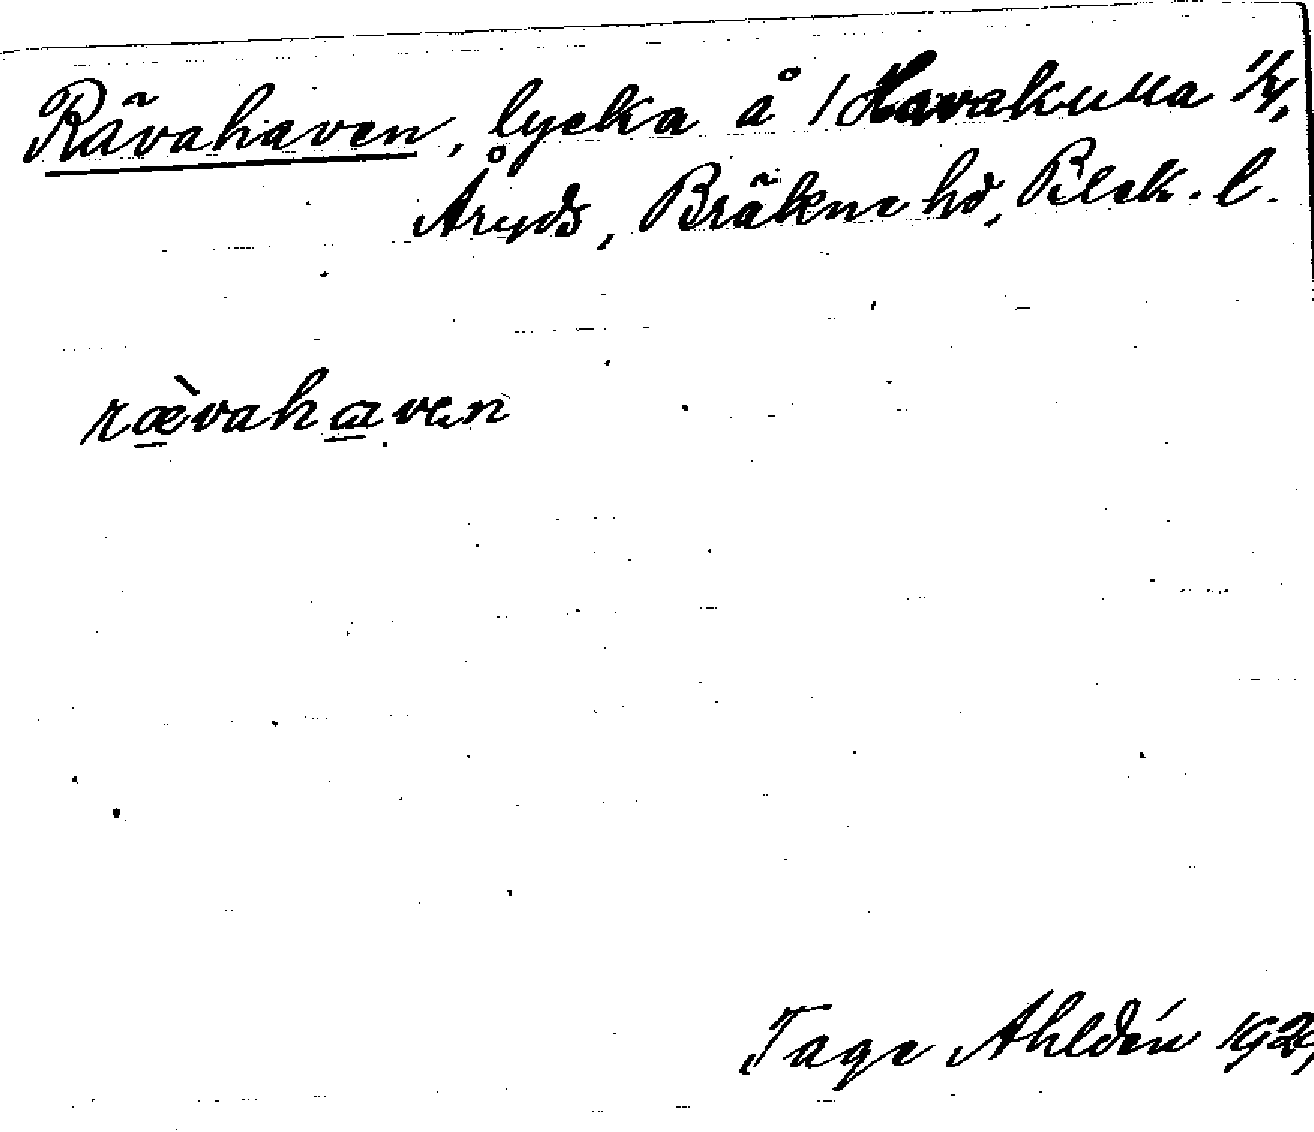 Rävahaven, lycka å / Havakulla 1/4,
Åryds, Bräkne hd, Blek. l.
rævahaven
Tage Ahldén 1929